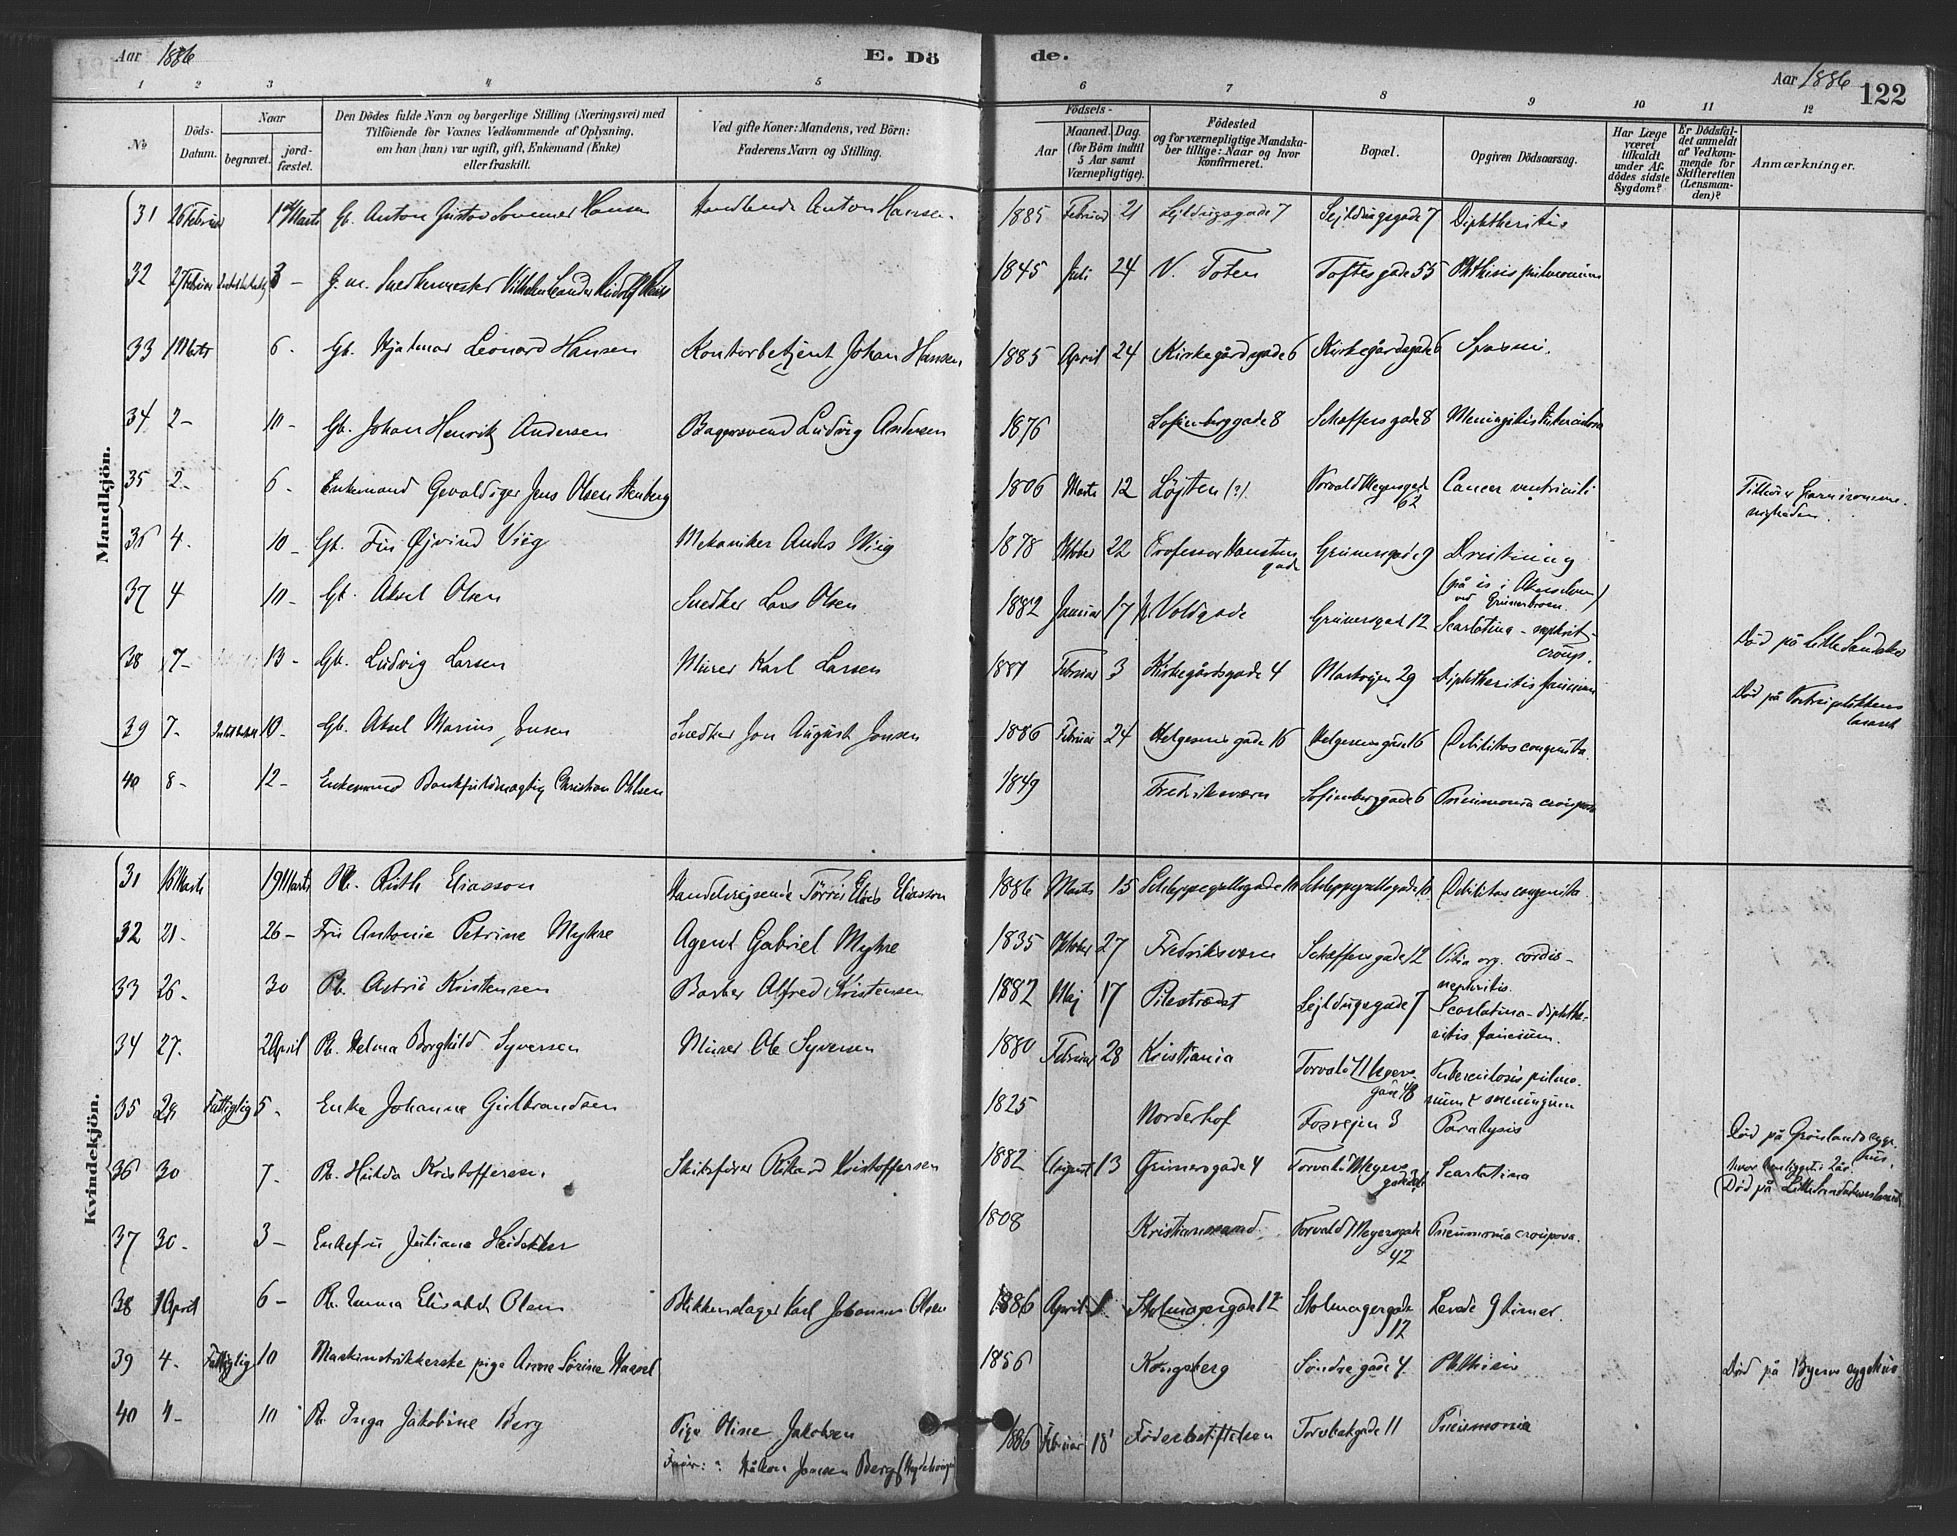 Aar 1886 E. Dö de. Aar 1886 122
1 2 3 4 5 6 7 8 9 10 11 12
No
Döds-Datum.
Naar
begravet.
jord-fæstet.
Den Dödes fulde Navn og borgerlige Stilling (Næringsvei) med
Tilföiende for Voxnes Vedkommende af Oplysning,
om han (hun) var ugift, gift, Enkemand (Enke)
eller fraskilt.
Ved gifte Koner: Mandens, ved Börn:
Faderens Navn og Stilling.
Födsels-
Aar
Maaned. Dag.
(for Börn indtil
5 Aar samt
Værnepligtige).
Födested
og for værnepligtige Mandska-
ber tillige: Naar og hvor
konfirmeret.
Bopæl.
Opgiven Dödsaarsag.
Har Læge
været
tilkaldt
under Af-
dödes sidste
Sygdom?
Er Dödsfal-
det anmeldt
af Vedkom-
mende for
Skifteretten
(Lensman-
den)?
Anmærkninger.
Mandkjön.
31 26 Februar 1 Marts Gb. Anton Gustav Sommer Hansen Handlende Anton Hansen 1885 Februar 21 Sejldugsgade 7 Sejldugsgade 7 Diphtheritis
32 27 Februar 3 – G. m. Snedkermester Vilhelm Leander Rudolf 1845 Juli 24 V. Toten Toftesgade 55 Phthisis pulmonum
33 1 Marts 6 – Gb. Hjalmar Leonard Hansen Kontorbetjent Johan Hansen 1885 April 24 Kirkegårdsgade 6 Kirkegårdsgade 6 Spasmi.
34 2 – 10 – Gb. Johan Henrik Andersen Bagersvend Ludvig Andersen 1876 Sofienberggade 8 Schæffersgade 8 Meningitis
35 2 – 6 – Enkemand Gevaldiger Jens Olsen Stenberg 1806 Marts 12 Løjten (?). Torvald Meyersgade 62 Cancer ventriculi Tilhører Garnisonsme-
nigheden.
36 4 – 10 – Gb. Øjvind Wiig Mekaniker Anders Wiig 1878 Oktober 22 Professor Hanstens
gade Grünersgade 9 Drukning
(på is i Akerselven
ved Grünerbroen.)
37 4 10 – Gb. Aksel Olsen Snedker Lars Olsen 1882 Januar 17 Voldgade Grünersgade 12 Scarlatina – nephrit –
croup. Død på Lille Sandaker
38 7 – 13 – Gb. Ludvig Larsen Murer Karl Larsen 1881 Februar 3 Kirkegårdsgade 4 Markvejen 29 Diphtheritis faucium Død på
lasaret
39 7 – 10 – Gb. Aksel Marius Jensen Snedker Jon August Jonsen 1886 Februar 24 Helgesensgade 16 Helgesensgade 16 Debilitas congenita
40 8 – 12 – Enkemand Bankfuldmægtig Christian Ohlsen 1849 Fredriksværn Sofienberggade 6 Pneumonia crouposa
Kvindekjön.
31 16 Marts 19 Marts Pb. Ruth Eliasson Handelsrejsende Tørris Elias Eliasson 1886 Marts 15 Schleppegrellsgade Schleppegrellsgade Debilitas congenita.
32 21 – 26 – Fru Antonie Petrine Myhre Agent Gabriel Myhre 1835 Oktober 27 Fredriksværn Schæffersgade 12 Vitia org. cordis –
nephritis.
33 26 – 30 Pb. Astrid Kristensen Barber Alfred Kristensen 1882 Maj 17 Pilestrædet Sejldugsgade 7 Scarlatina – diphthe-
ritis faucium.
34 27. 2 April Pb. Helma Borghild Syversen Murer Ole Syversen 1880 Februar 28 Kristiania Torvald Meyers-
gade 48 Tuberculosis pulmo-
num & meningum
35 29 Fattiglig 5 – Enke Johanne Gulbrandsen 1825 Norderhof Fosvejen 3 Paralysis Død på Grønlands syge-
hus,
hvor hun ligget i 2 år.
36 30 7 – Pb. Hilda Kristoffersen. Skibsfører Rikard Kristoffersen 1882 August 13 Grünersgade 4 Torvald Meyers-
gade Scarlatina Død på Lille
37 30 – 3 – Enkefru Juliane Heidekker 1808 Kristianssand Torvald Meyersgade
42 Pneumonia crouposa.
38 1 April 6 – Pb. Emma Elisabeth Olsen Blikkenslager Karl Johannes Olsen 1886 April 1 Stolmagergade 12 Stolmagergade
12 Levede 9 timer.
39 4 – Fattiglig 10 Maskinstrikkerske pige Anne Sørine Hassel 1856 Kongsberg Søndre gade 4 Phthisis Død på Byens sygehus
40 4 – 10 Pb. Inga Jakobine Berg Pige Oline Jakobsen
Håkon Jonsen Berg 1886 Februar 18 Fødselsstiftelsen Torvbakgade 11 Pneumonia